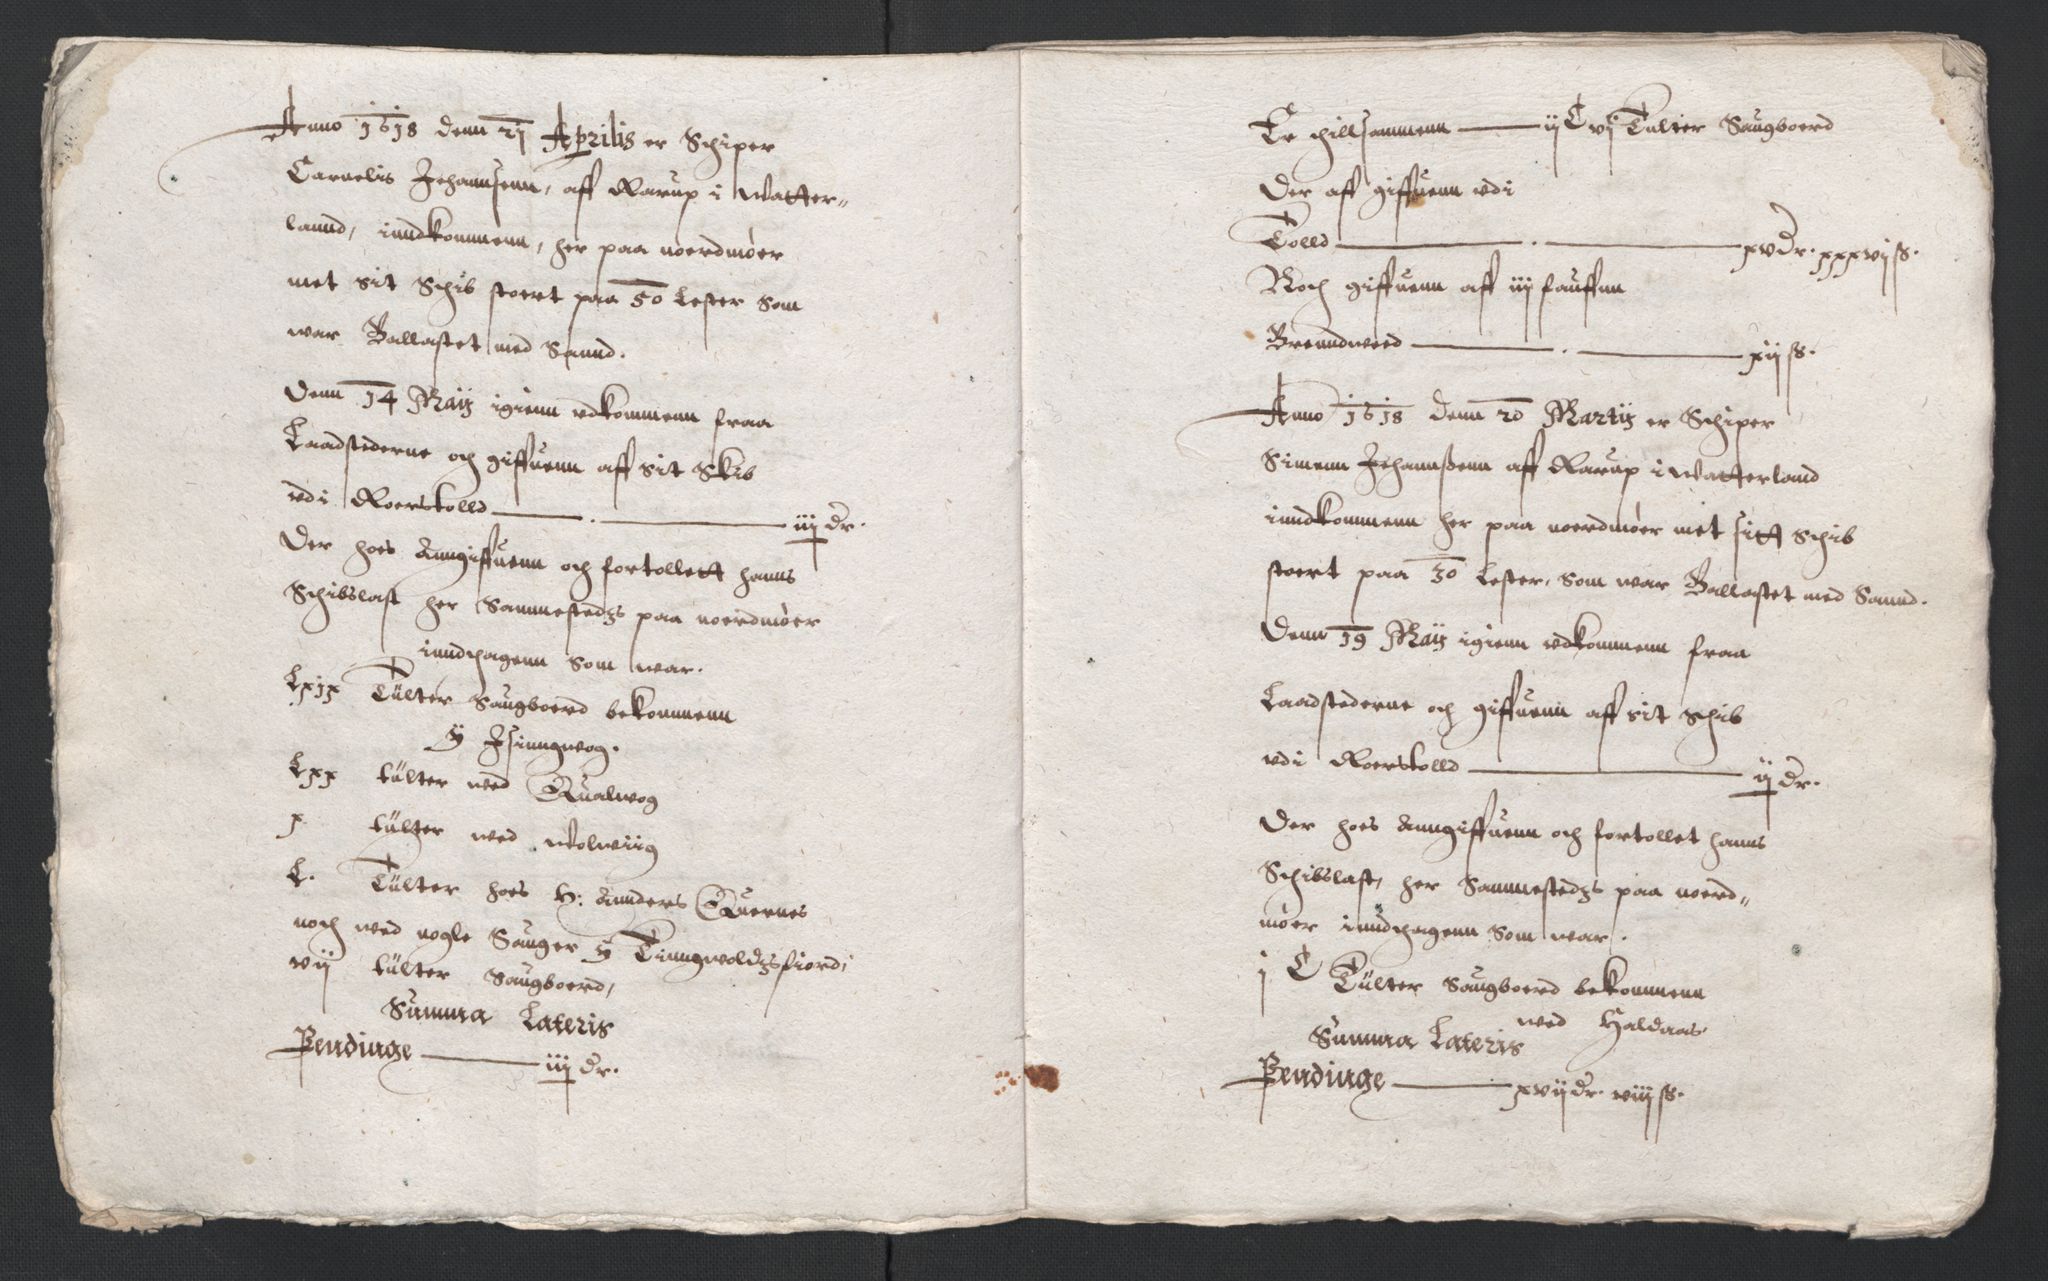 Anno 1618 denn 21 Aprilis er Schiper
Carnelis Jehannsenn, aff Rarup i Watter-
lannd, inndkommenn, her paa noerdmøer
met sit Schib stoert paa 50 Lester som
war Ballastet med Sannd.
Denn 14 Maij igienn vdkommenn fraa
Laadstederne och giffuenn aff sit Skib
vdi Roerstolld iiij dr.
Der hoes anngiffuenn och fortollett hanns
Schibslast her Sammestedzs paa noerdmøer
inndtagenn som war.
Lxix Tülter Saugboerd bekommenn
y Jsinngwog.
Lxx tülter wed Qualwog
x tülter wed
L. Tülter hoes H: Annders Quernes
noch wed nogle Sauger y Tinngwoldzsfiord,
vij tülter Saugboerd,
Summa Lateris
Pendinge iiij dr.
Er thillsammenn ij C vj Tülter Saugboerd
Der aff giffuenn vdi
Tolld xv dr. xxxvj ß.
Noch giffuenn aff iij fauffnn
Brenndweed xij ß.
Anno 1618 denn 20 Martij er Schiper
Simenn Jehannßenn aff Rarup i Watterland
inndkommenn her paa noerdmøer met sitt Schib
stoert paa 30 Lester, som war Ballastet med Sannd.
Denn 19 Maij igienn vdkommenn fraa
Laadstederne och giffuenn aff sit Schib
vdi Roerstolld ij dr.
Der hoes anngiffuenn och fortollet hanns
Schibslast, her Sammestedzs paa noerd-
møer inndtagenn som war.
j C Tülter Saugboerd bekommenn
wed Haldaas
Summa Lateris
Pendinge xvij dr. viij ß.